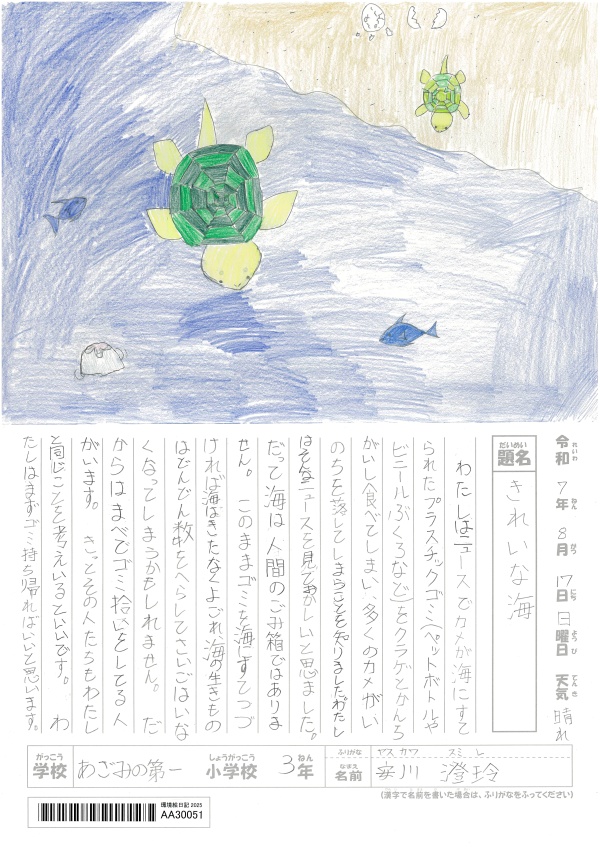 令和 7年 8月 17日 日曜日 天気 晴れ
れいわ ねん がつ にち ようび てんき
だいめい
題名 きれいな海
わたしはニュースでカメが海にすて
られたプラスチックゴミ(ペットボトルや
ビニールぶくろなど)をクラゲとかんち
がいし食べてしまい、多くのカメがい
のちを落してしまうことを知りました。わたし
はそんなニュースを見ておかしいと思いました。
だって海は人間のごみ箱ではありま
せん。このままゴミを海にすてつづ
ければ海はきたなくよごれ海の生きもの
はどんどん数をへらしてさいごはいな
くなってしまうかもしれません。だ
からはまべでゴミ拾いをしてる人
がいます。きっとその人たちもわたし
と同じことを考えいるといいです。わ
たしはまずゴミ持ち帰ればいいと思います。
がっこう しょうがっこう ねん
学校 あざみの第一 小学校 3年
ふりがな ヤス カワ スミ レ
なまえ
名前 安川 澄玲
(漢字で名前を書いた場合は、ふりがなをふってください)
環境絵日記 2025
AA30051